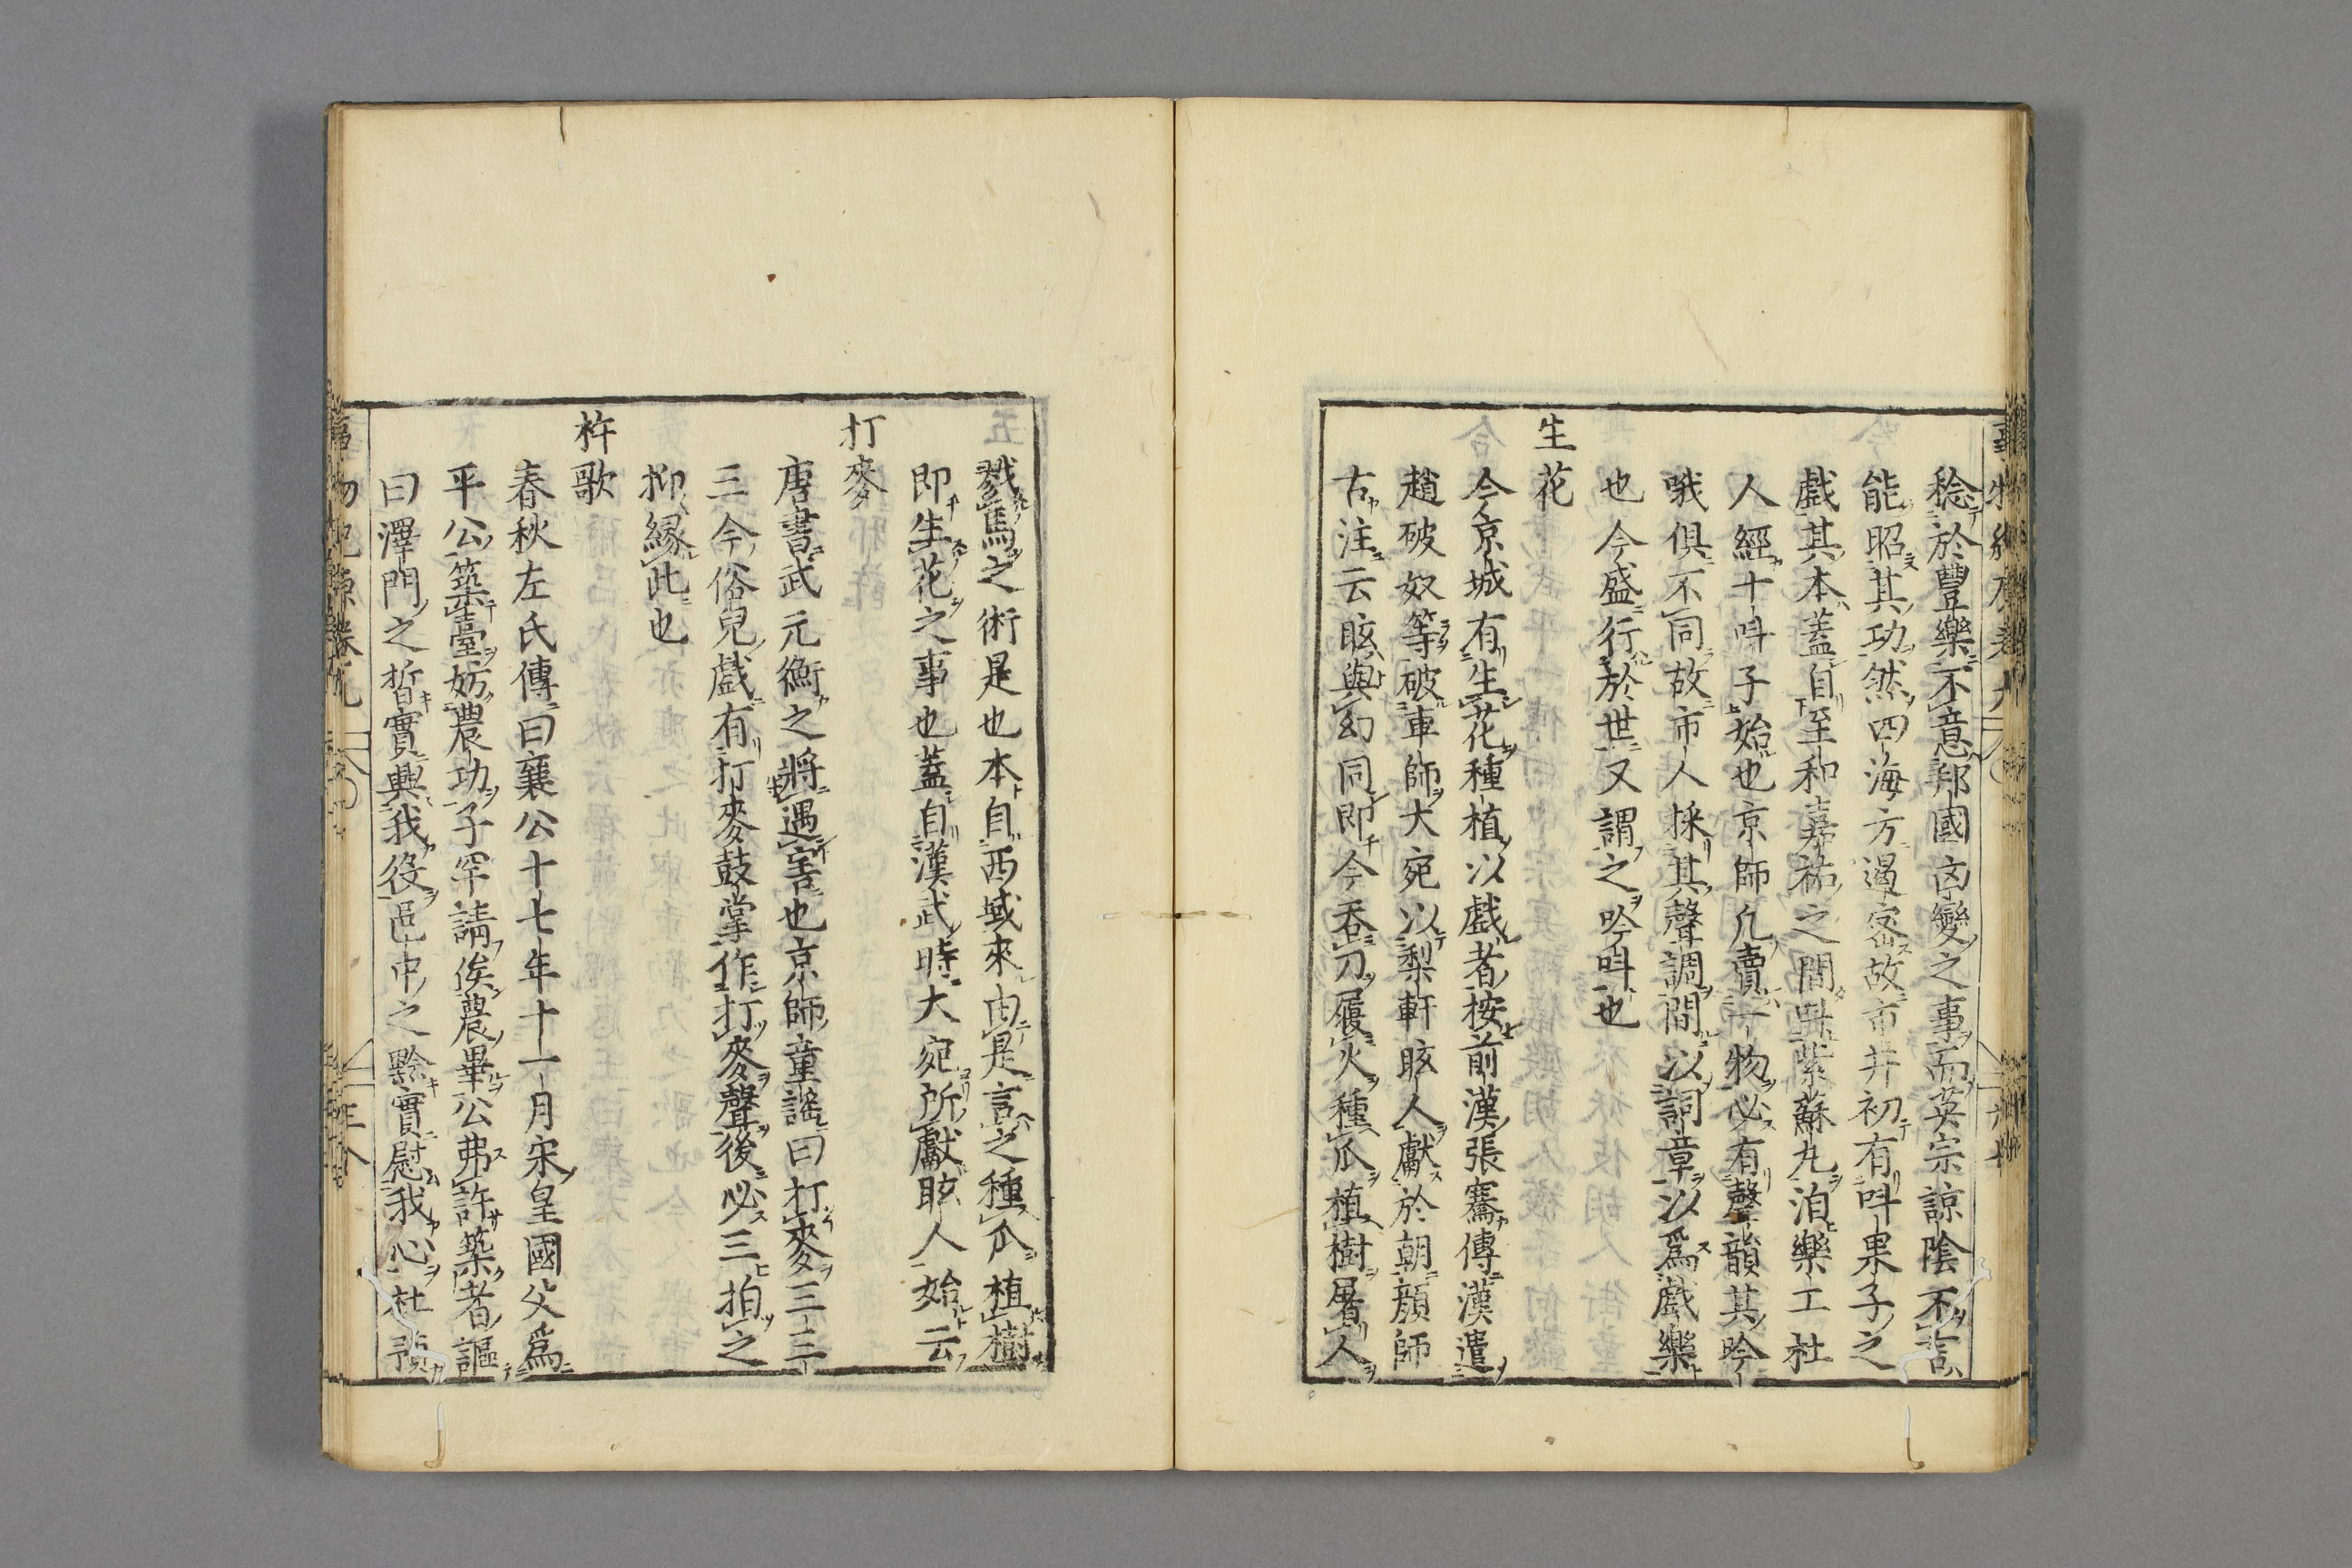 稔於豐樂不意邦國凶變之事而英宗諒陰不言
能昭其功然四海方遏密故市井初有叫果子之
戲其本蓋自至和嘉祐之間叫紫蘇丸洎樂工杜
人經十叫子始也京師凡賣一物必有聲韻其吟
哦俱不同故市人採其聲調間以詞章以爲戲樂
也今盛行於世又謂之吟叫也
生花
今京城有生花種植以戲者按前漢張騫傳漢遣
趙破奴等破車師大宛以梨軒眩人獻於朝顔師
古注云眩與幻同即今吞刀履火種瓜植樹屠人
戮馬之術是也本自西域來由是言之種瓜植樹
即生花之事也蓋自漢武時大宛所獻眩人始云
打麥
唐書武元衡之將遇害也京師童謠曰打麥三三
三今俗兒戲有打麥鼓掌作打麥聲後必三拍之
抑縁此也
杵歌
春秋左氏傳曰襄公十七年十一月宋皇國父爲
平公築臺妨農功子罕請俟農畢公弗許築者謳
曰澤門之晳實興我役邑中之黔實慰我心杜預